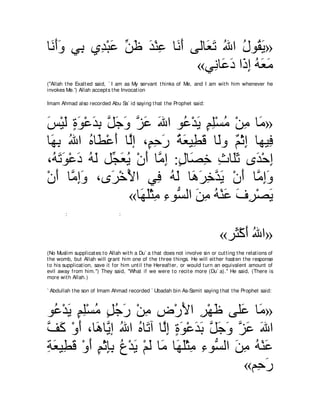 «يَقُولُ اللهُ تَعَالَى أَنَا عِنْدَ ظَنِّ عَبْدِي بِي وَأَنَا
مَعَهُ إِذَا دَعَانِي»
("Allah the Exalted said, `I am as My servant thinks of Me, and I am with him whenever he
invokes Me.') Allah accepts the Invocation
Imam Ahmad also recorded Abu Sa`id saying that the Prophet said:
«مَا مِنْ مُسْلِمٍ يَدْعُو اللهَ عَزَّ وَجَلَّ بِدَعْوَةٍ لَيْسَ
فِيهَا إِثْمٌ وَلَا قَطِيعَةُ رَحِمٍ، إِلَّا أَعْطَاهُ اللهُ بِهَا
إِحْدَى ثَلَاثِ خِصَالٍ: إِمَّا أَنْ يُعَجِّلَ لَهُ دَعْوَتَهُ،
وَإِمَّا أَنْ يَدَّخِرَهَا لَهُ فِي الْأُخْرَى، وَإِمَّا أَنْ
يَصْرِفَ عَنْهُ مِنَ السُّوءِ مِثْلَهَا»
: :
«اللهُ أَكْثَرُ»
(No Muslim supplicates to Allah with a Du`a that does not involve sin or cutting the relations of
the womb, but Allah will grant him one of the three things. He will either hasten the response
to his supplication, save it for him until the Hereafter, or would turn an equivalent amount of
evil away from him.") They said, "What if we were to recite more (Du`a)." He said, (There is
more with Allah.)
`Abdullah the son of Imam Ahmad recorded `Ubadah bin As-Samit saying that the Prophet said:
«مَا عَلَى ظَهْرِ الْأَرْضِ مِنْ رَجُلٍ مُسْلِمٍ يَدْعُو
اللهَ عَزَّ وَجَلَّ بَدَعْوَةٍ إِلَّا آتَاهُ اللهُ إِيَّاهَا، أَوْ كَفَّ
عَنْهُ مِنَ السُّوءِ مِثْلَهَا مَا لَمْ يَدْعُ بِإِثْمٍ أَوْ قَطِيعَةِ
رَحِمٍ»